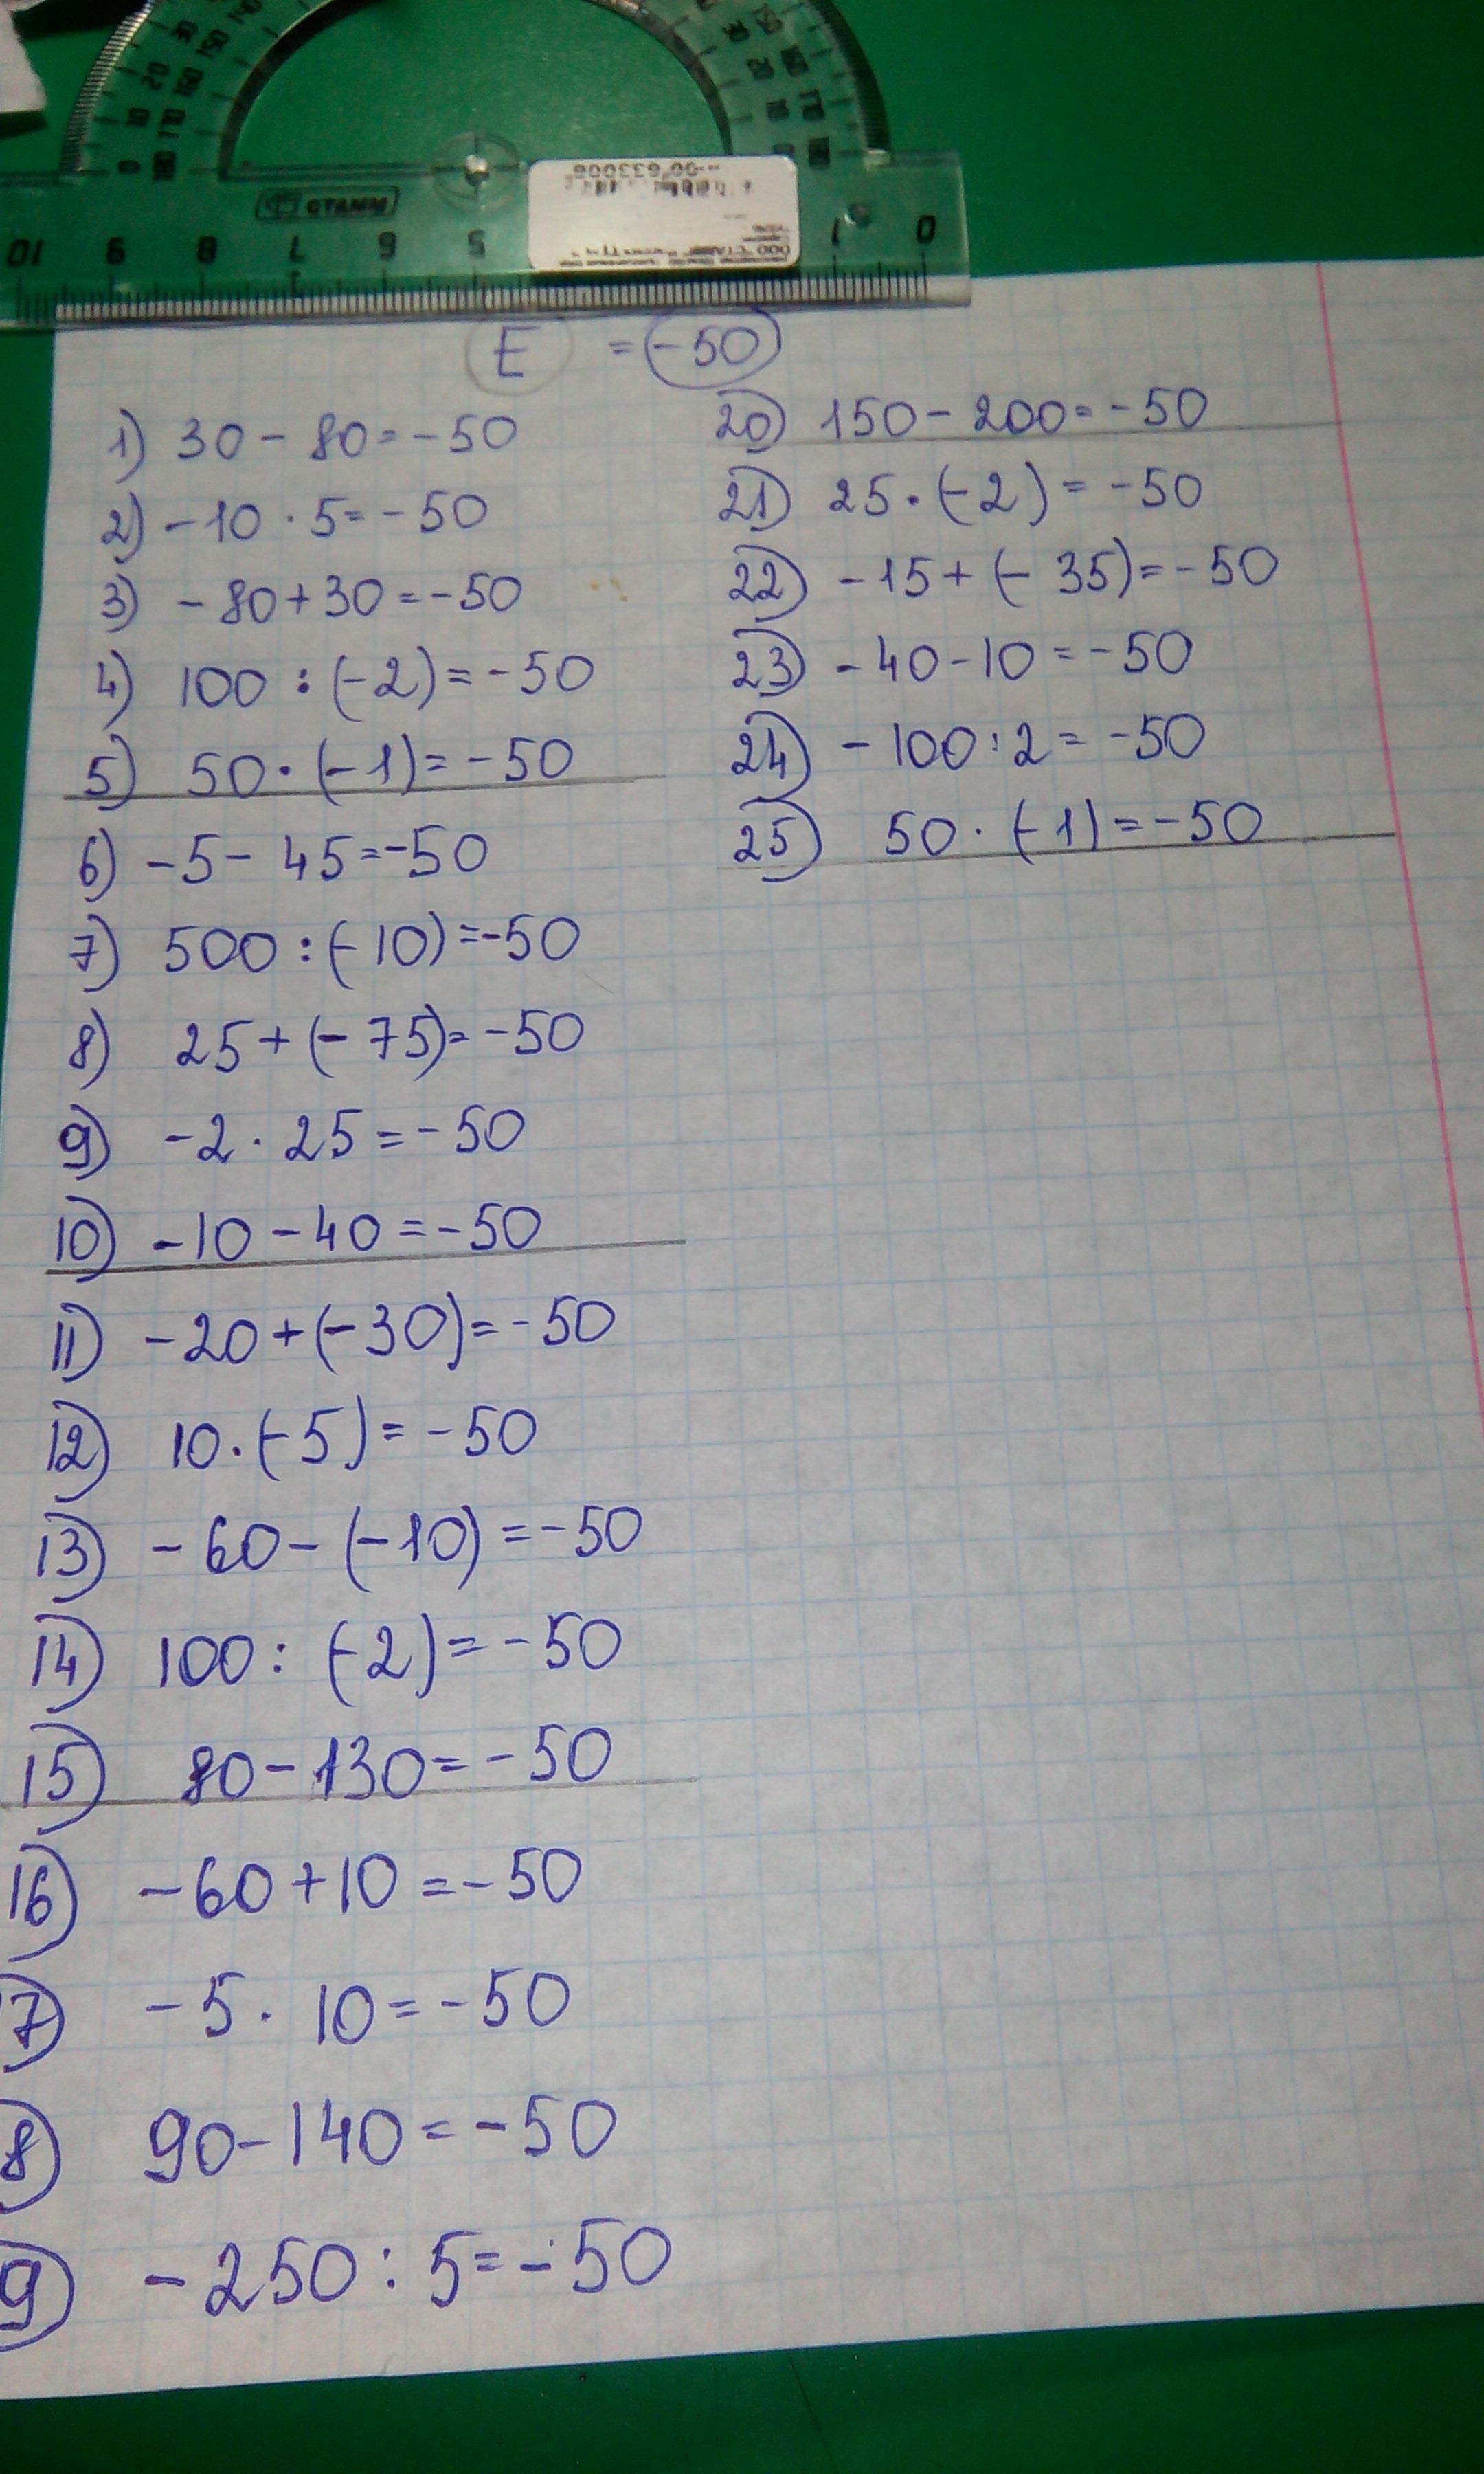 СТАММ
10 9 8 7 6 5 1 0
E = -50
1) 30 - 80 = -50
2) -10 · 5 = -50
3) -80 + 30 = -50
4) 100 : (-2) = -50
5) 50 · (-1) = -50
6) -5 - 45 = -50
7) 500 : (-10) = -50
8) 25 + (-75) = -50
9) -2 · 25 = -50
10) -10 - 40 = -50
11) -20 + (-30) = -50
12) 10 · (-5) = -50
13) -60 - (-10) = -50
14) 100 : (-2) = -50
15) 80 - 130 = -50
16) -60 + 10 = -50
7) -5 · 10 = -50
8) 90 - 140 = -50
9) -250 : 5 = -50
20) 150 - 200 = -50
21) 25 · (-2) = -50
22) -15 + (-35) = -50
23) -40 - 10 = -50
24) -100 : 2 = -50
25) 50 · (-1) = -50